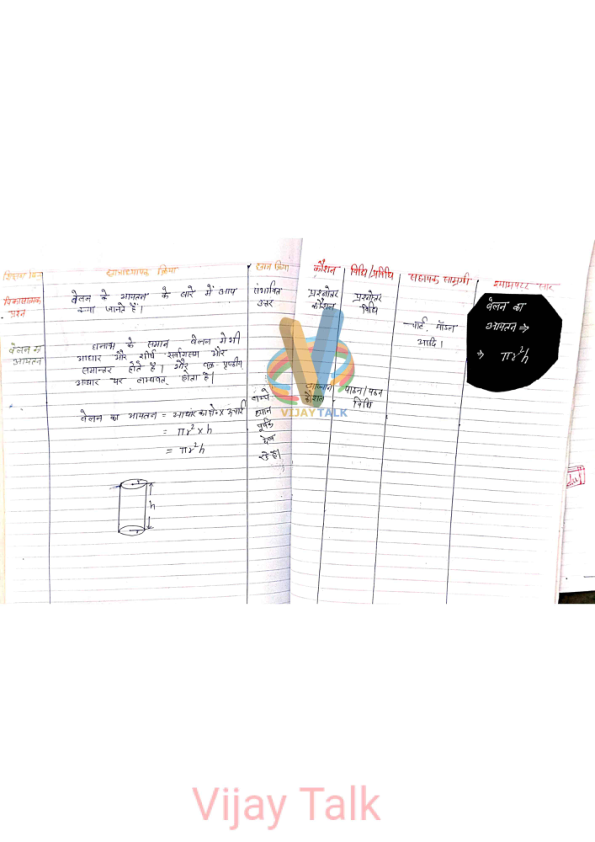 शिक्षण बिन्दु
छात्राध्यापक क्रिया
छात्र क्रिया
कौशल
विधि/प्रविधि
सहायक सामग्री
श्यामपट्ट
विकासात्मक
प्रश्न
बेलन के आयतन के बारे में आप
क्या जानते हैं।
संभावित
उत्तर
प्रश्नोत्तर
कौशल
प्रश्नोत्तर
विधि
चार्ट, मॉडल
आदि।
बेलन का
आयतन ⇒
⇒ πr²h
बेलन का
आयतन
घनाभ के समान बेलन में भी
आधार और शीर्ष सर्वांगसम और
समान्तर होते हैं। और वक्र पृष्ठीय
आधार पर लम्बवत् होता है।
बेलन का आयतन = आधार का क्षे० x ऊंचाई
= πr² x h
= πr²h
h
ध्यान
पूर्वक
देख
रहे हैं।
व्याख्यान
कौशल
पाठन/पठन
विधि
VIJAY TALK
Vijay Talk